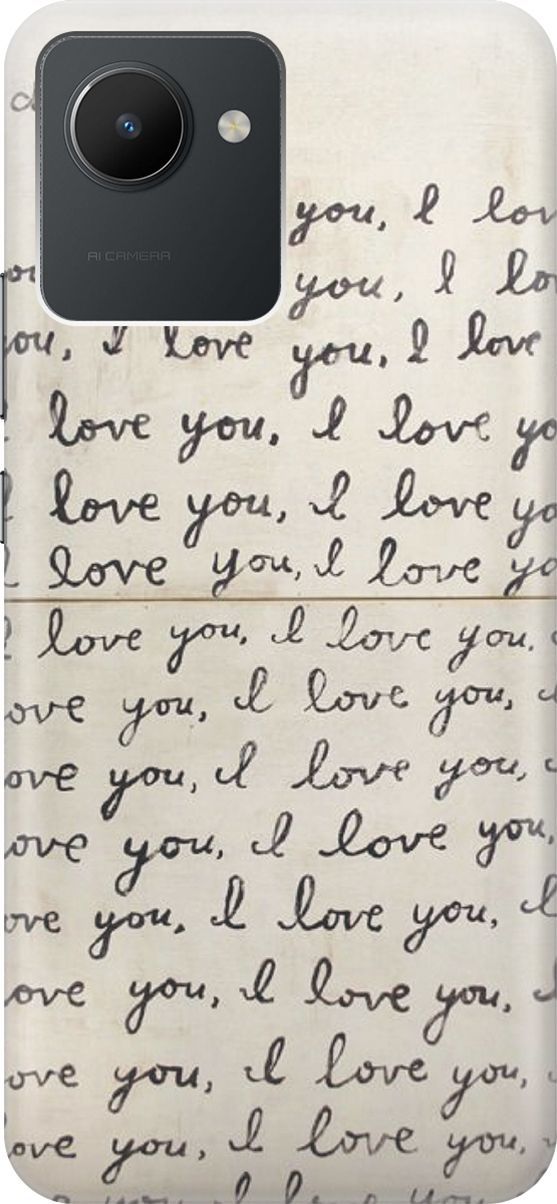 AI CAMERA
you, I lov
you, I lo
ou, I love you, I love
love you, I love yo
love you, I love yo
I love you, I love yo
I love you, I love you,
ove you, I love you,
ove you, I love you,
ove you, I love you,
ove you, I love you, I
ove you, I love you, I
ove you, I love you,
ove you, I love you,
you, I love you